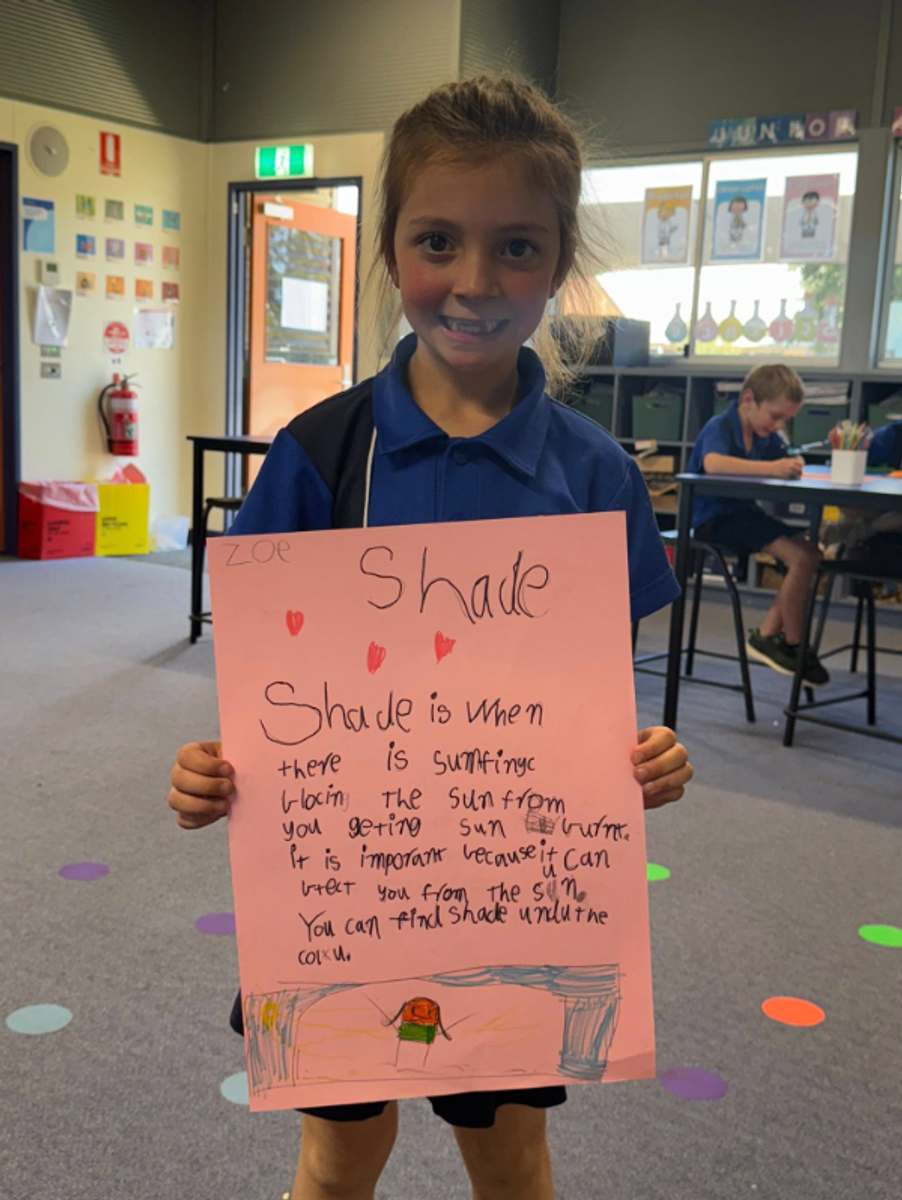 JUNIOR
Zoe
Shade
Shade is when
there is sumfinyc
blocing the sun from
you geting sun burnt.
it is imporant because it can
btect you from the sun.
You can find shade undu the